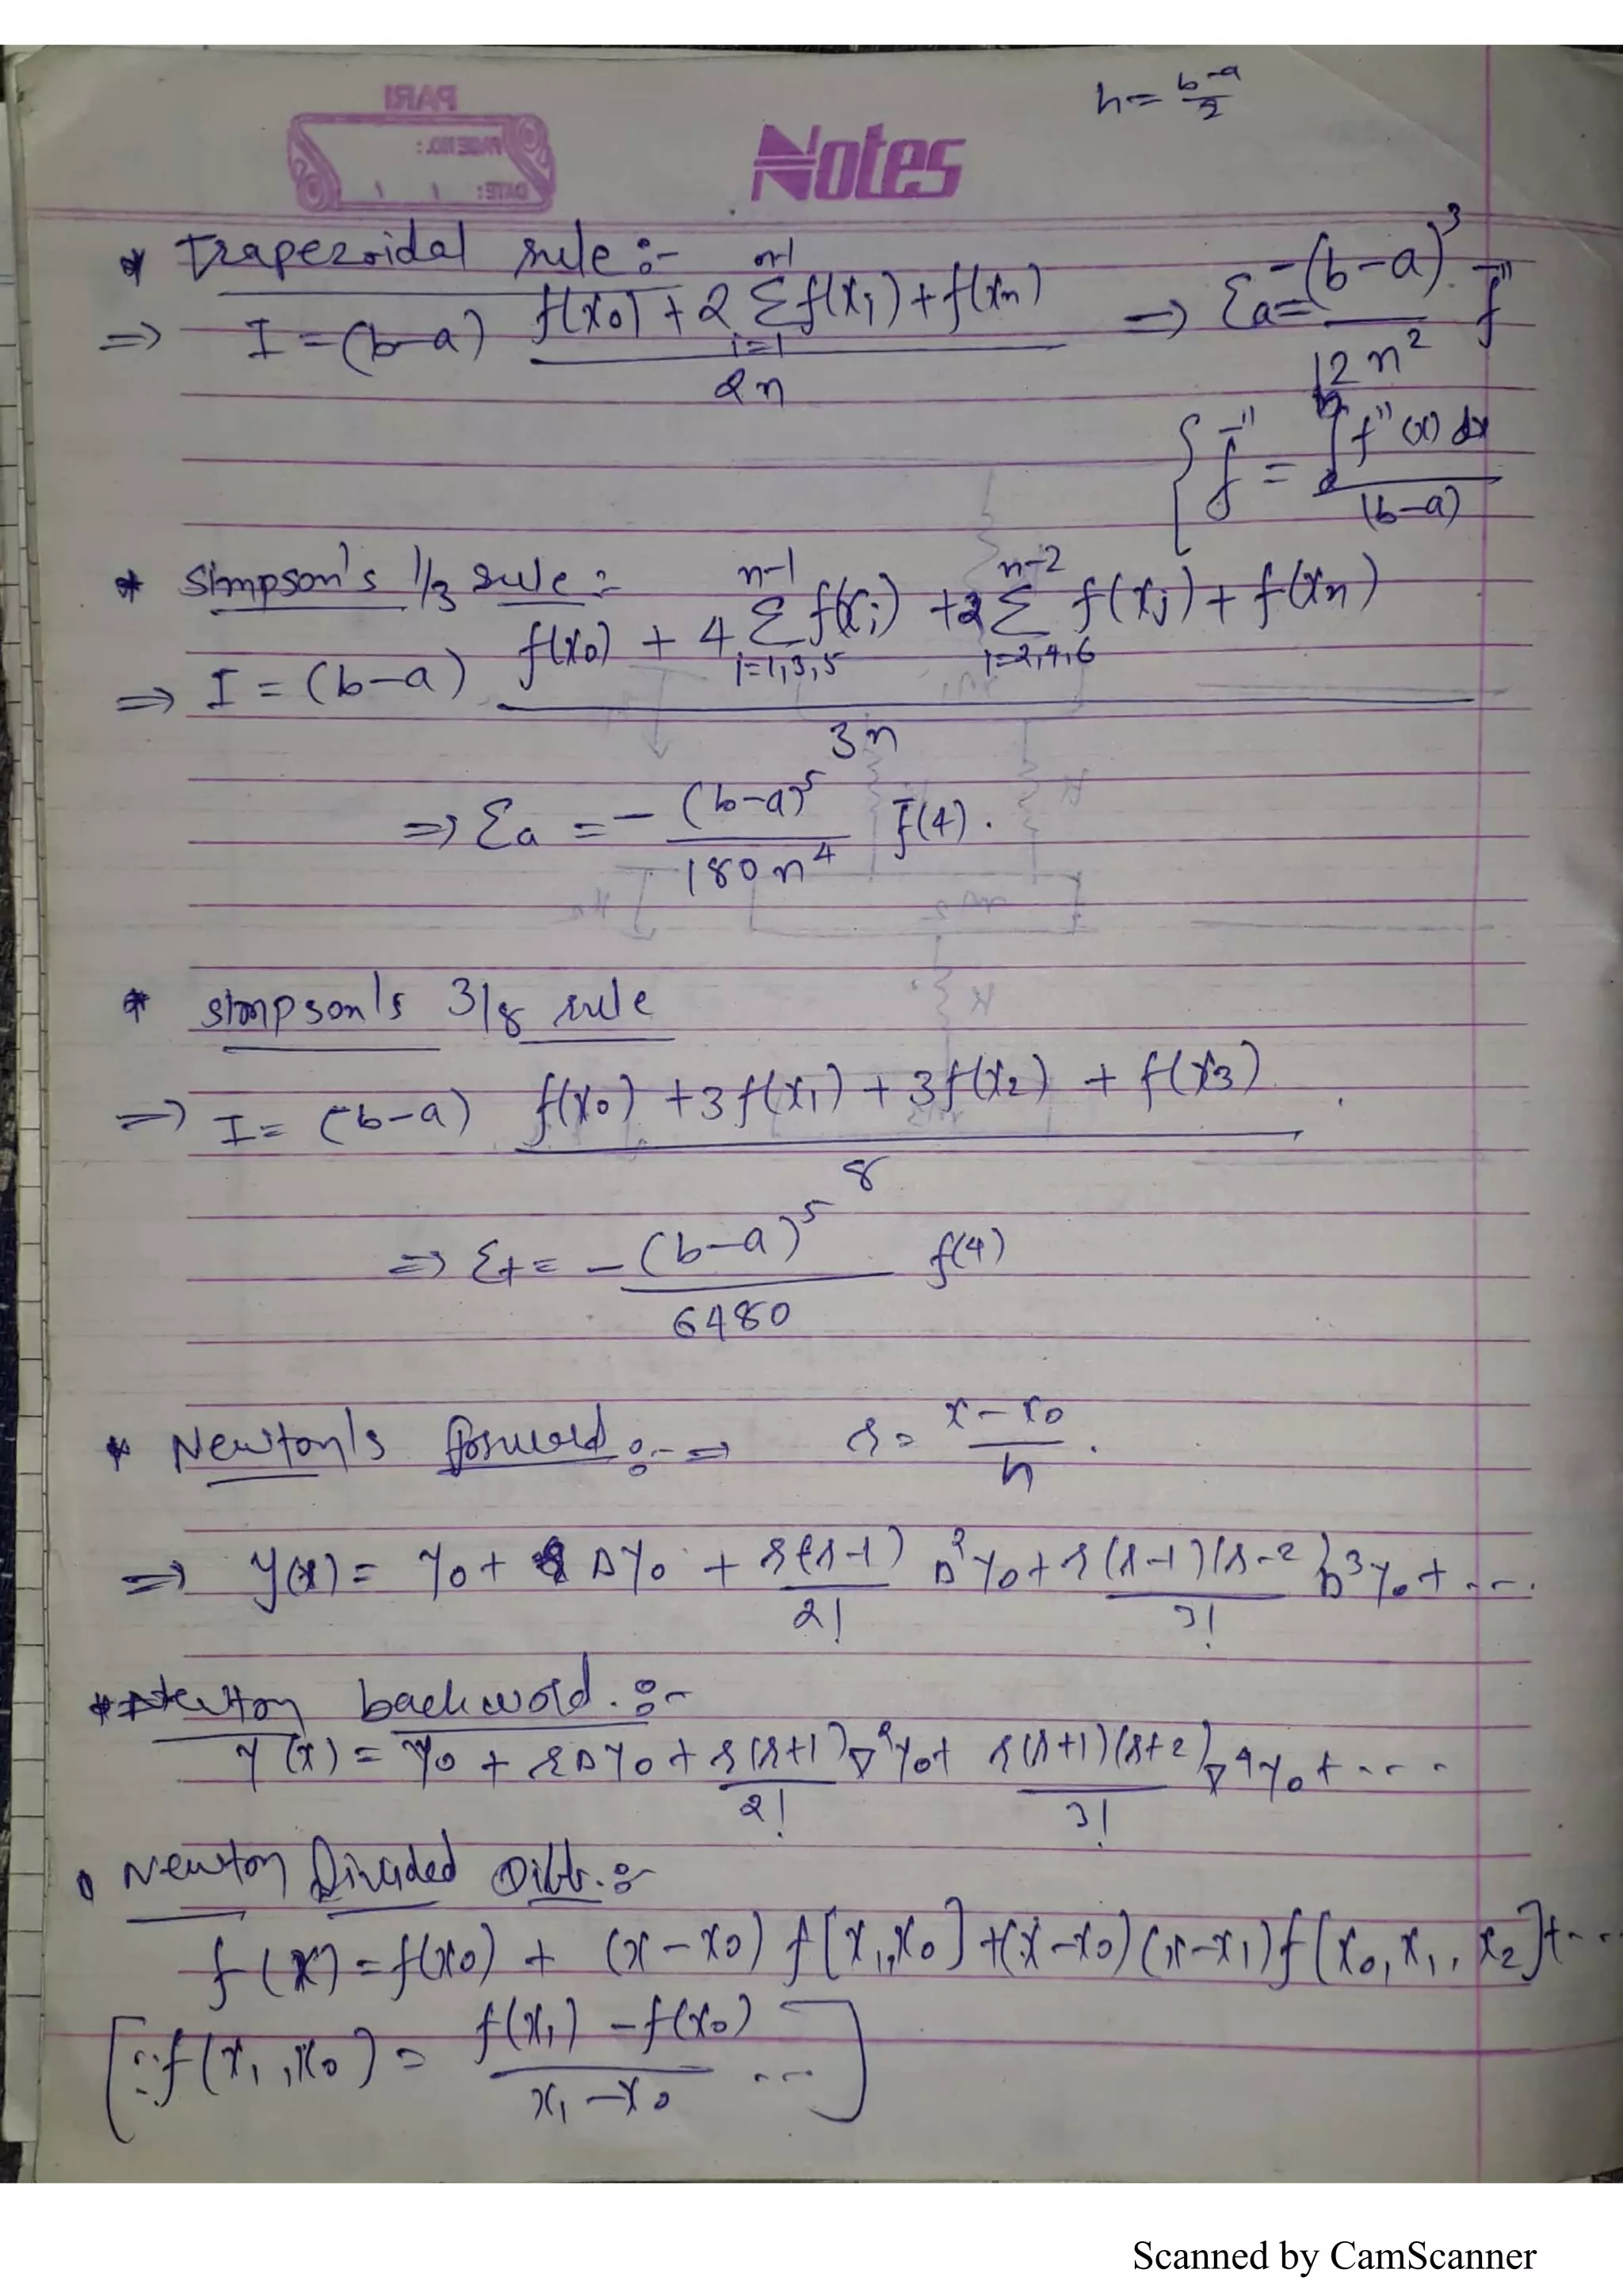 h = b-a/2
PARI
PAGE NO.:
DATE: / /
Notes
* Trapezoidal rule :-
⇒ I = (b-a) f(x₀) + 2 Σ_{i=1}^{n-1} f(xᵢ) + f(xₙ) / 2n ⇒ Ɛa = -(b-a)³ / 12n² f̄''
{ f̄'' = ∫ₐᵇ f''(x) dx / (b-a)
* Simpson's 1/3 rule :-
⇒ I = (b-a) f(x₀) + 4 Σ_{i=1,3,5}^{n-1} f(xᵢ) + 2 Σ_{i=2,4,6}^{n-2} f(xⱼ) + f(xₙ) / 3n
⇒ Ɛa = - (b-a)⁵ / 180n⁴ f̄(4).
* Simpson's 3/8 rule
⇒ I = (b-a) f(x₀) + 3f(x₁) + 3f(x₂) + f(x₃) / 8
⇒ Ɛt = -(b-a)⁵ / 6480 f(4)
* Newton's forword :- ⇒ s = x-x₀ / h .
⇒ y(x) = y₀ + s Δy₀ + s(s-1) / 2! Δ²y₀ + s(s-1)(s-2) / 3! Δ³y₀ + ....
* Newton backword. :-
y(x) = y₀ + sΔy₀ + s(s+1) / 2! ∇²y₀ + s(s+1)(s+2) / 3! ∇⁴y₀ + ....
• Newton Divided Diff. :-
f(x) = f(x₀) + (x-x₀) f[x₁,x₀] + (x-x₀)(x-x₁) f[x₀,x₁,x₂] + ...
[∵ f(x₁,x₀) = f(x₁) - f(x₀) / x₁-x₀ ...]
Scanned by CamScanner